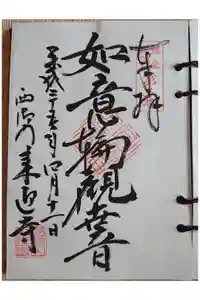 奉拝
如意輪觀世音
平成二十五年四月十一日
来迎寺